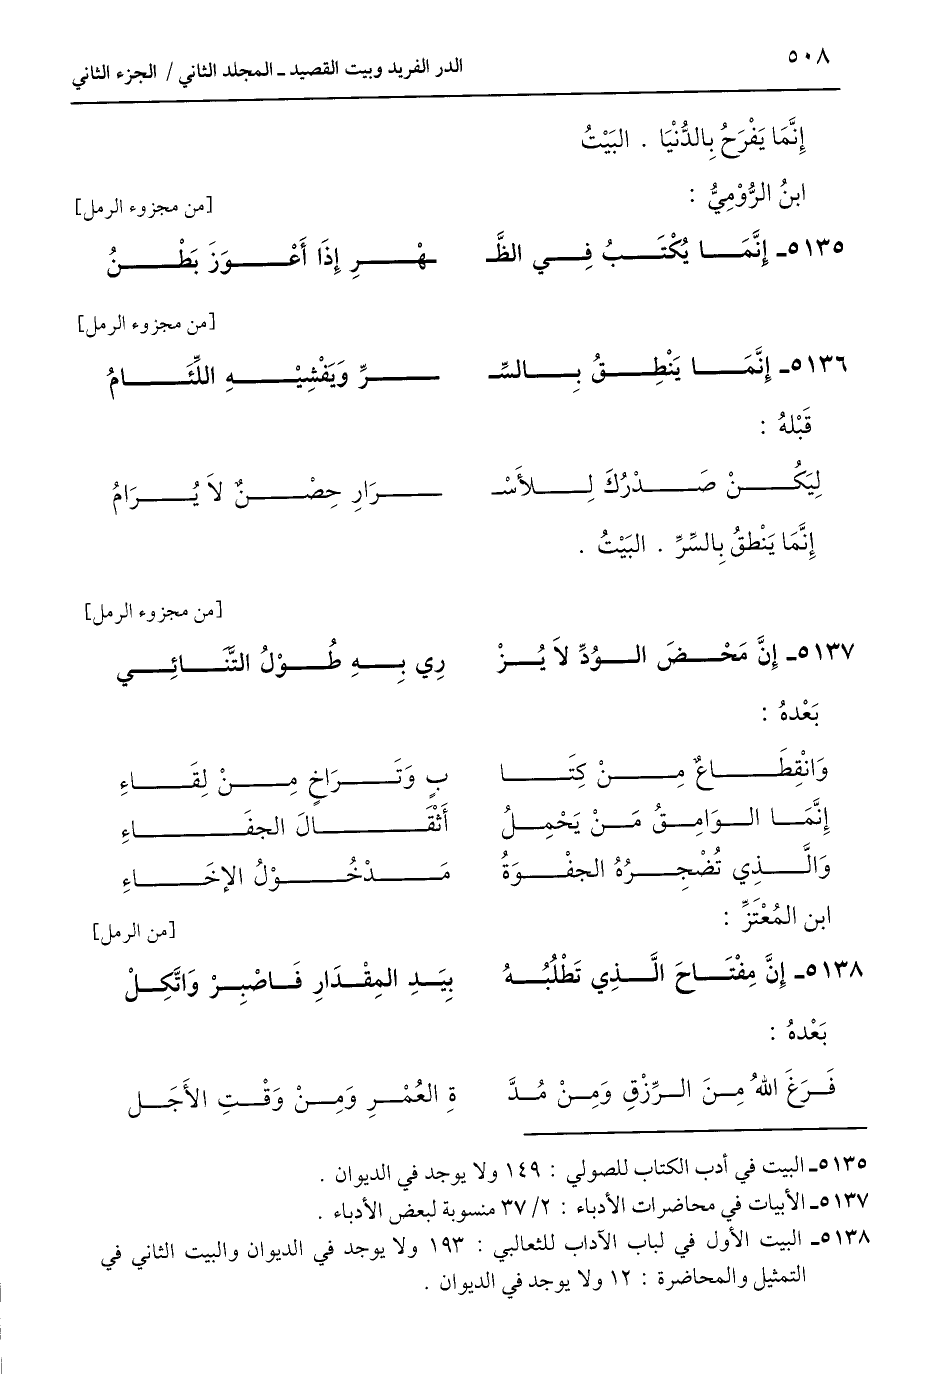 ٥٠٨
الدر الفريد وبيت القصيد ـ المجلد الثاني / الجزء الثاني
إِنَّمَا يَفْرَحُ بِالدُّنْيَا . البَيْتُ
ابنُ الرُّوْمِيُّ :
[من مجزوء الرمل]
٥١٣٥ـ إِنَّمَا يُكْتَبُ فِي الظَّـ ـهْرِ إِذَا أَعْوَزَ بَطْنُ
[من مجزوء الرمل]
٥١٣٦ـ إِنَّمَا يَنْطِقُ بِالسِّـ ـرِّ وَيَفْشِيْهِ اللِّئَامُ
قَبْلهُ :
لِيَكُنْ صَدْرُكَ لِلأَسْـ ـرَارِ حِصْنٌ لاَ يُرَامُ
إِنَّمَا يَنْطقُ بِالسِّرِّ . البَيْتُ .
[من مجزوء الرمل]
٥١٣٧ـ إِنَّ مَحْضَ الوُدِّ لاَ يُزْ رِي بِهِ طُوْلُ التَّنَائِي
بَعْدهُ :
وَانْقِطَاعٌ مِنْ كِتَا بٍ وَتَرَاخٍ مِنْ لِقَاءِ
إِنَّمَا الوَامِقُ مَنْ يَحْمِلُ أَثْقَالَ الجفَاءِ
وَالَّذِي تُضْجِرُهُ الجفْوَةُ مَدْخُوْلُ الإخَاءِ
ابن المُعْتَزِّ :
[من الرمل]
٥١٣٨ـ إِنَّ مِفْتَاحَ الَّذِي تَطْلُبُهُ بِيَدِ المِقْدَارِ فَاصْبِرْ وَاتَّكِلْ
بَعْدهُ :
فَرَغَ اللهُ مِنَ الرِّزْقِ وَمِنْ مُدَّ ةِ العُمْرِ وَمِنْ وَقْتِ الأَجَلِ
٥١٣٥ـ البيت في أدب الكتاب للصولي : ١٤٩ ولا يوجد في الديوان .
٥١٣٧ـ الأبيات في محاضرات الأدباء : ٢/ ٣٧ منسوبة لبعض الأدباء .
٥١٣٨ـ البيت الأول في لباب الآداب للثعالبي : ١٩٣ ولا يوجد في الديوان والبيت الثاني في
التمثيل والمحاضرة : ١٢ ولا يوجد في الديوان .